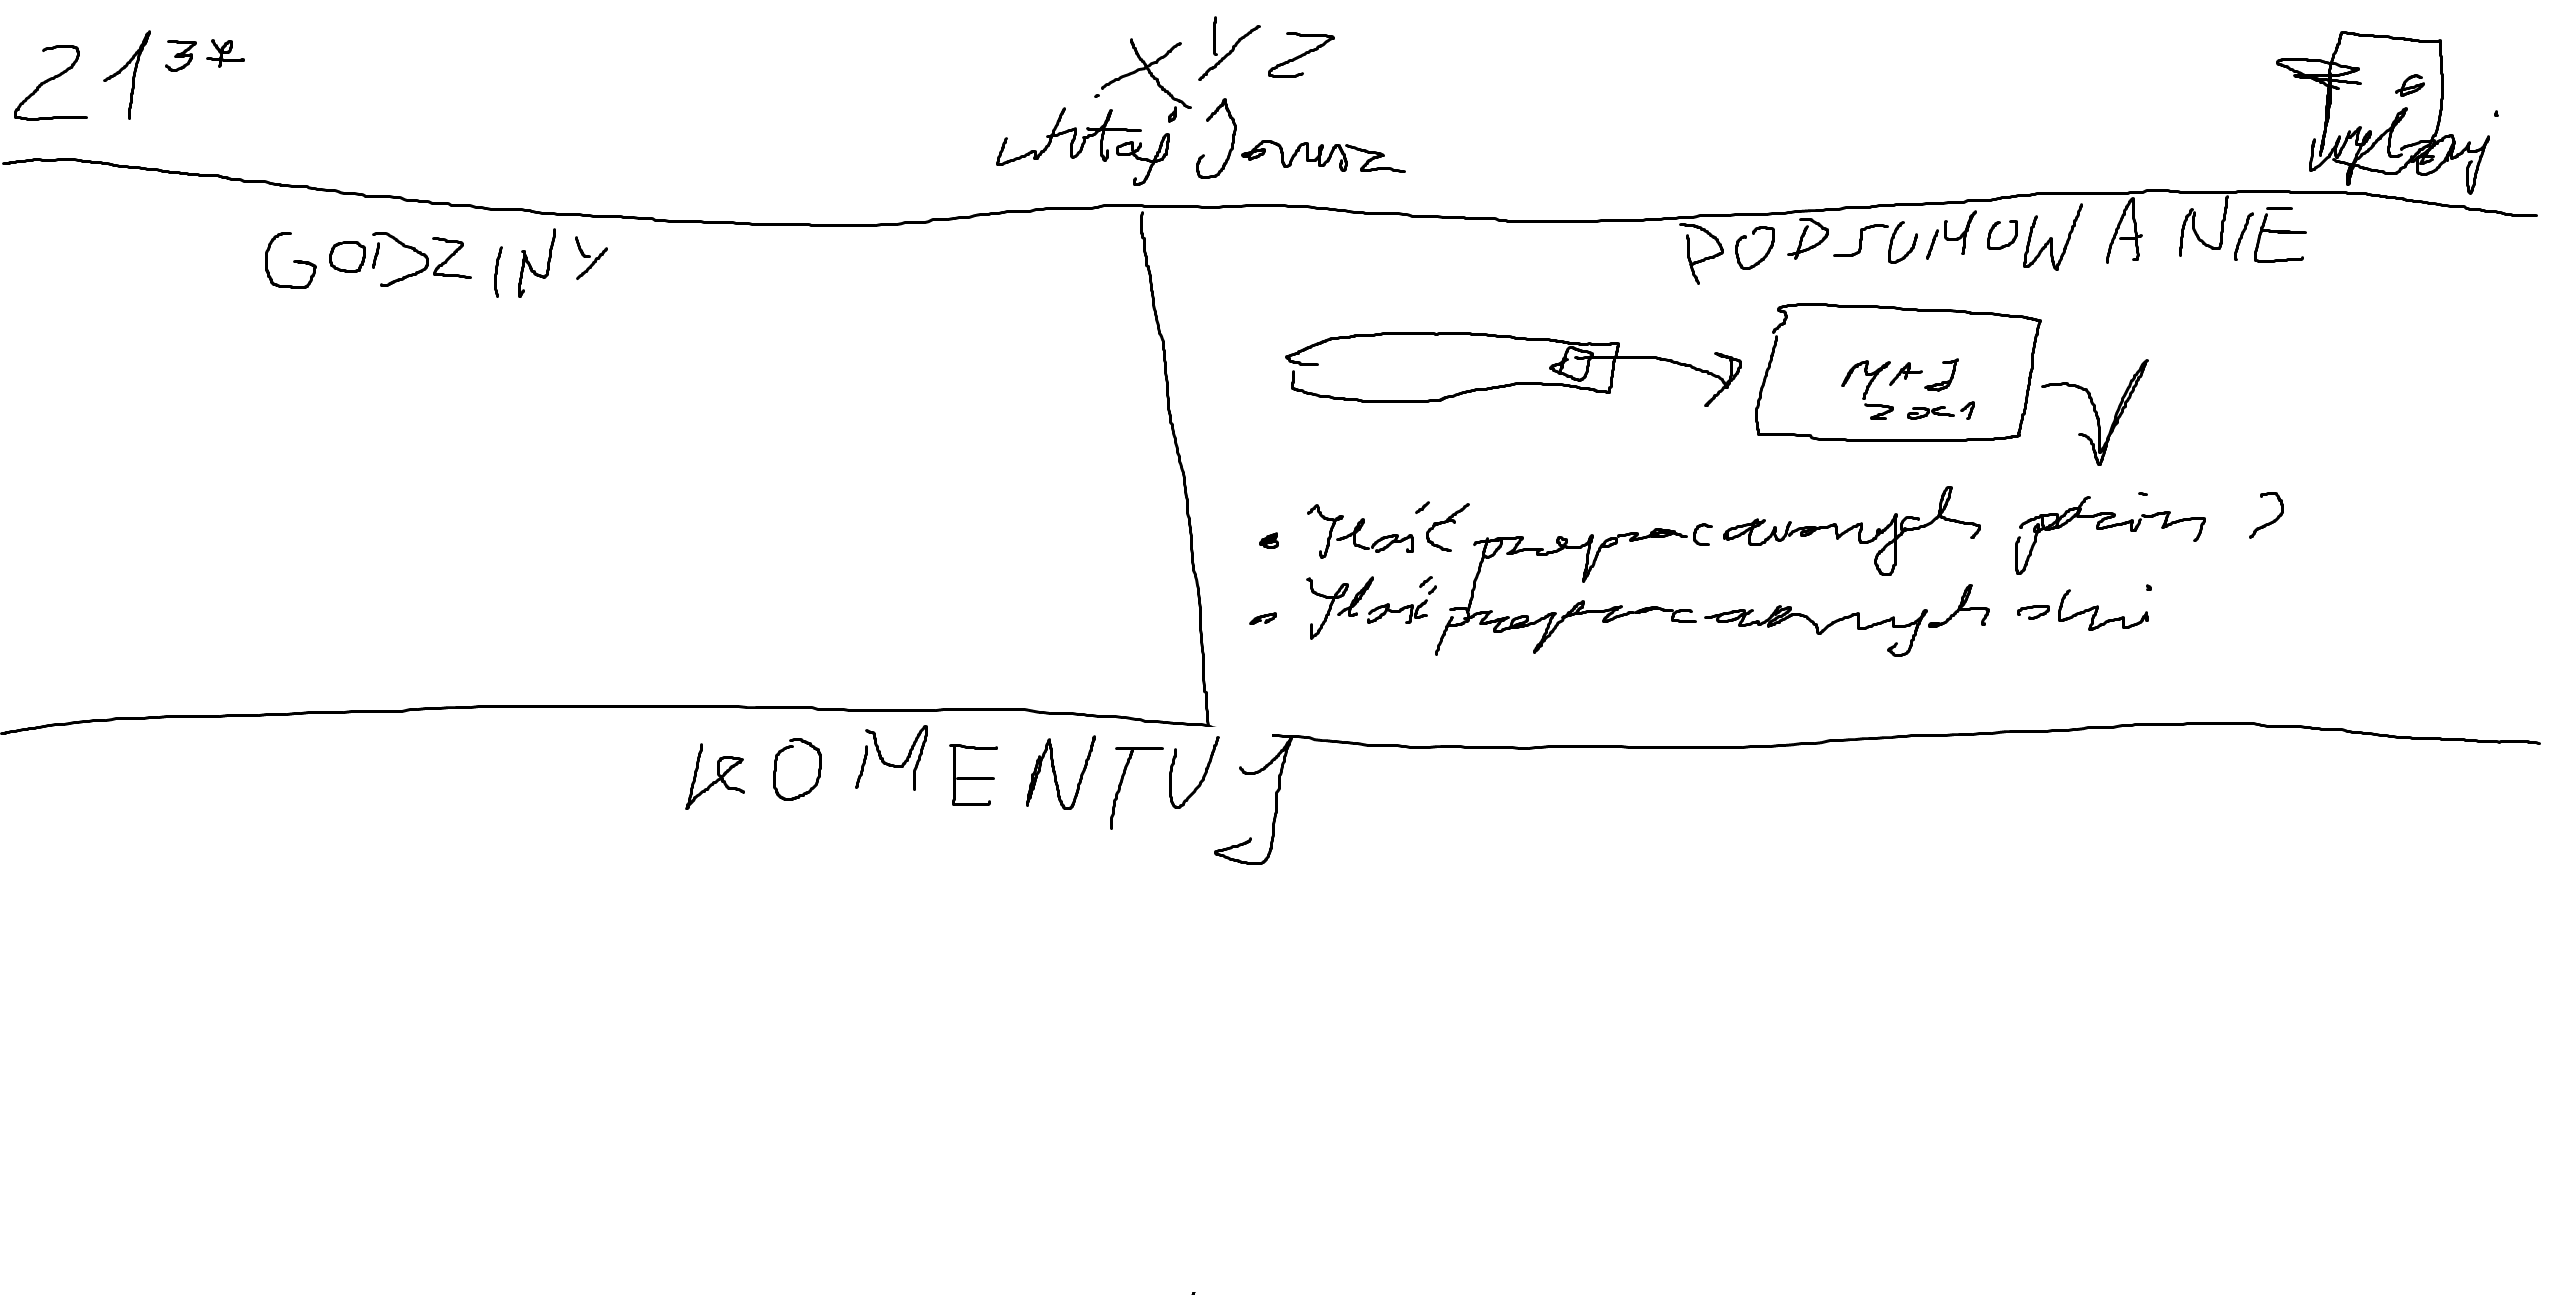 21 3*
XYZ
Witaj Janusz
Wyloguj
GODZINY
PODSUMOWANIE
MAJ
2021
• Ilość przepracowanych godzin ?
• Ilość przepracowanych dni
KOMENTUJ